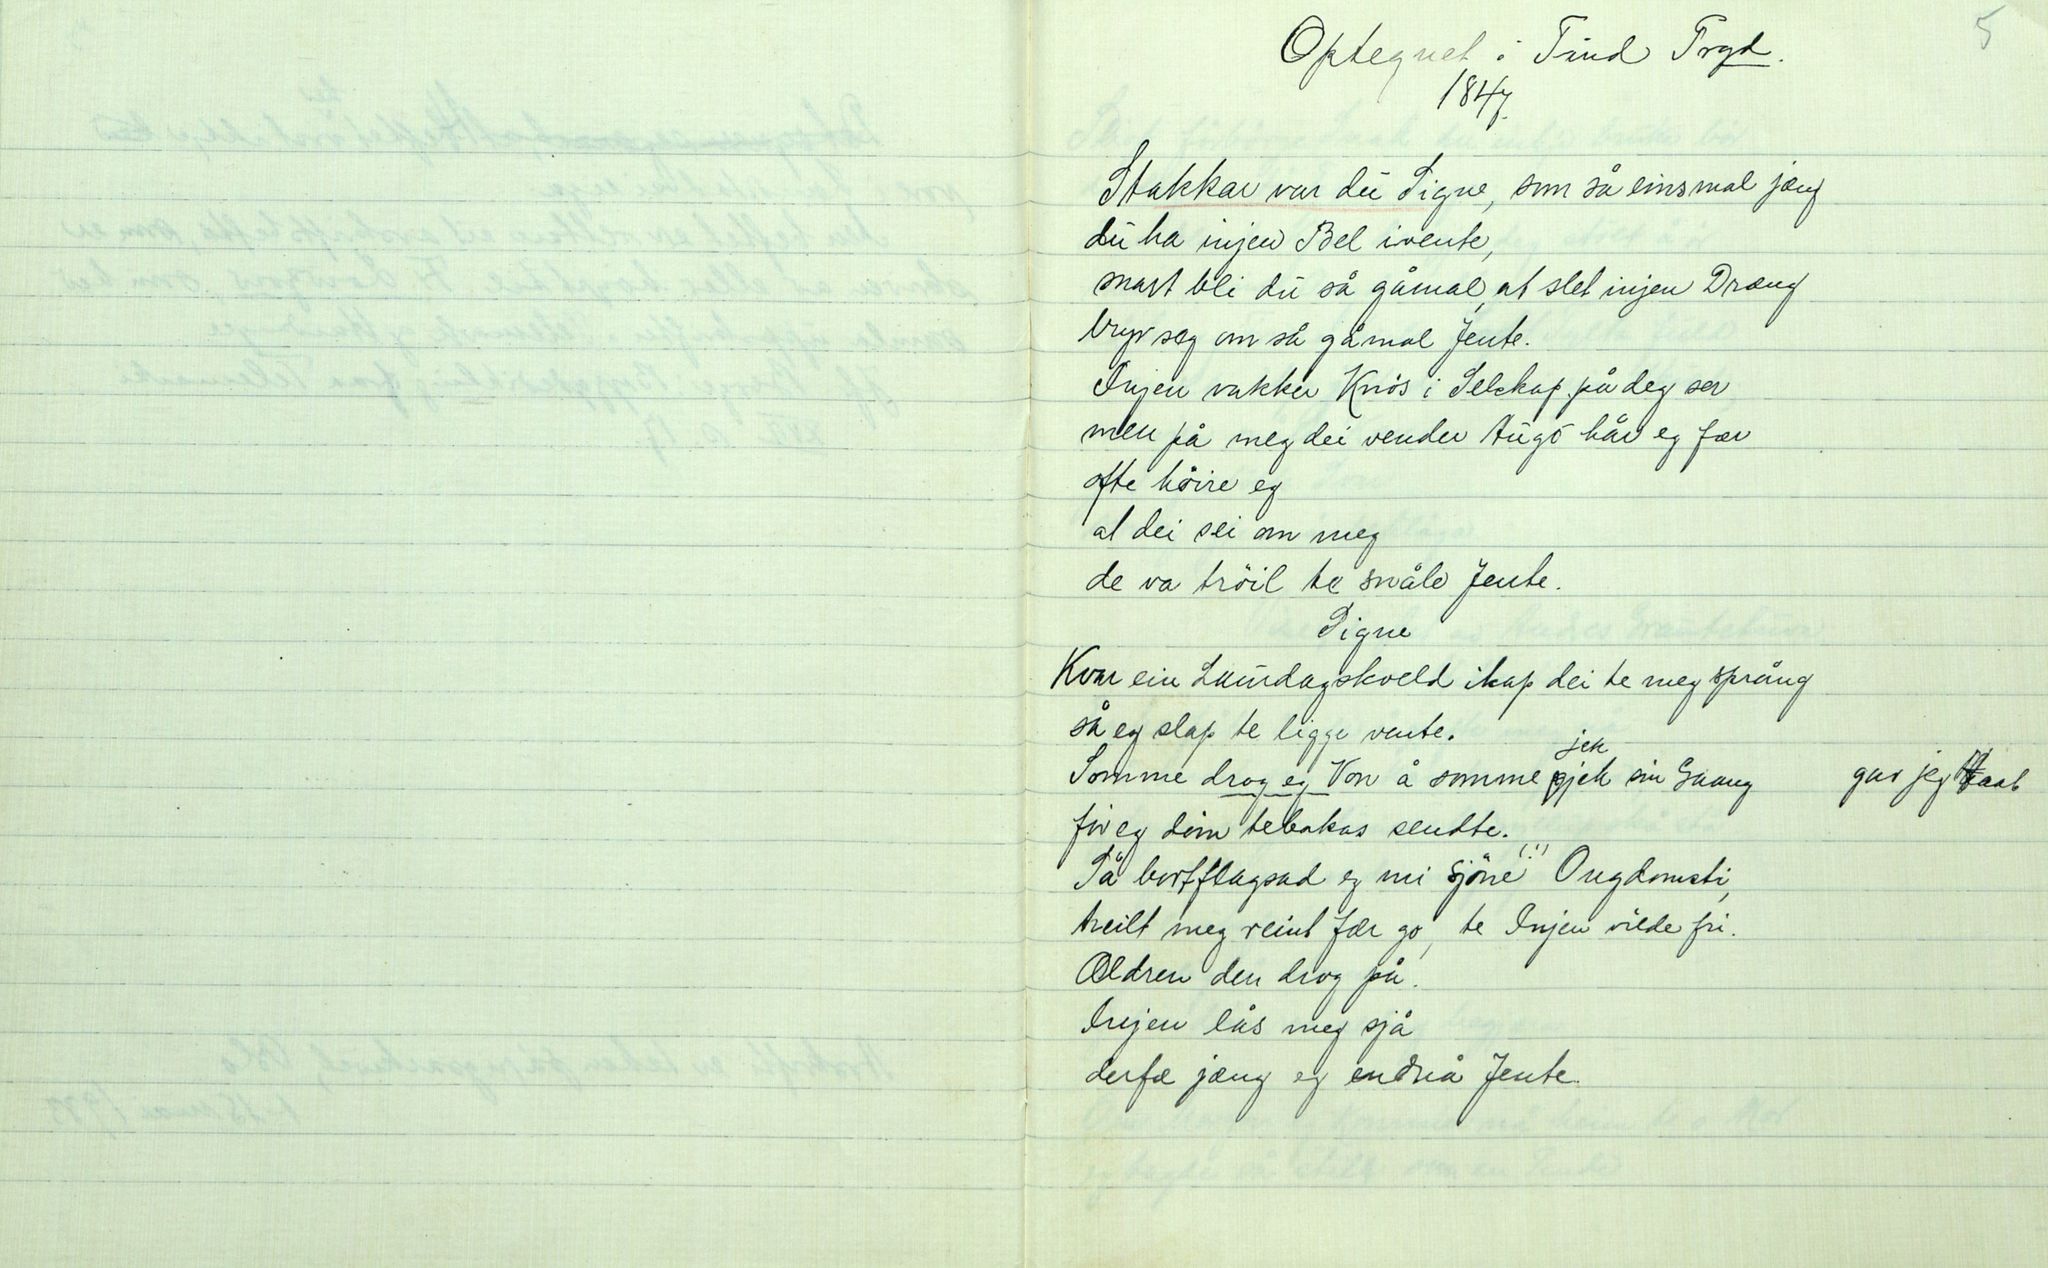 5
Optegnet i Tind Prgd.
1847.
Stakkar var du Signe, som så einsmal jæng
du ha injen Bel ivente,
snart bli du så gåmal, at slet injen Dræng
bryr seg om så gåmal Jente.
Injen vakker Knøs i Selskap på deg ser
men på meg dei vender Augo hår eg fær
ofte höire eg
at dei sei om meg
de va tröil te snåle Jente.
Signe
Kvar ein Laurdagskveld ikap dei te meg språng
så eg slap te ligge vente.
jek
Somme drog eg Von å somme gjek sin Gaang
gav jeg Haab
för eg deim tebakas sendte.
På bortflagsad eg mi sjöne (!) Ongdomsti,
heilt meg reint fær go, te Injen vilde fri.
Ældren den drog på.
Injen lås meg sjå
derfæ jæng eg endnå Jente.